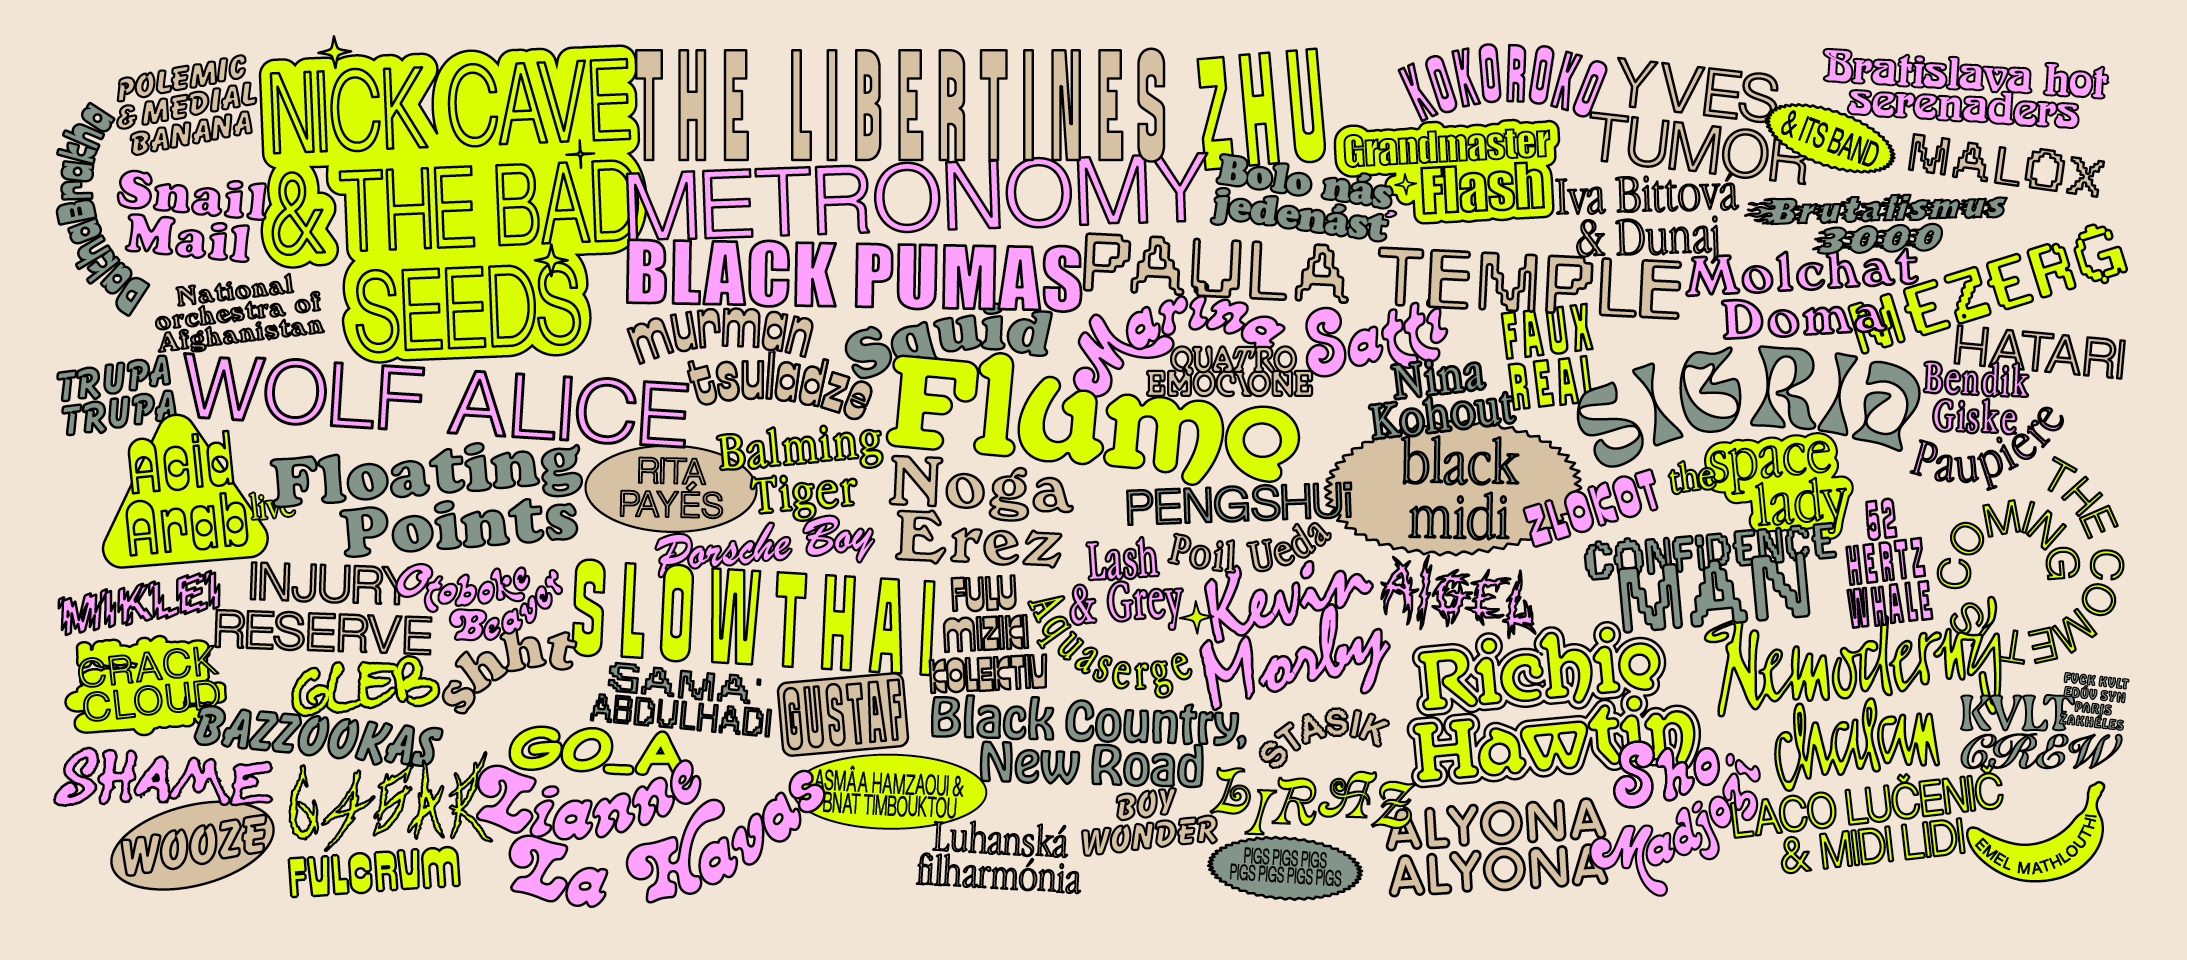 POLEMIC
& MEDIAL
BANANA
DakhaBrakha
Snail
Mail
NICK CAVE
& THE BAD
SEEDS
THE LIBERTINES
ZHU
KOKOROKO
YVES
TUMOR
& ITS BAND
Bratislava hot
serenaders
Grandmaster
Flash
MALOX
METRONOMY
Bolo nás
jedenásť
Iva Bittová
& Dunaj
Brutalismus
3000
National
orchestra of
Afghanistan
BLACK PUMAS
PAULA TEMPLE
Molchat
Doma
MEZERG
TRUPA
TRUPA
WOLF ALICE
murman
tsuladze
Squid
Marina Satti
QUATRO
EMOCIONE
FAUX
REAL
HATARI
Flume
Nina
Kohout
SIGRID
Bendik
Giske
Paupière
Acid
Arab
live
Floating
Points
RITA
PAYÉS
Balming
Tiger
Noga
Erez
PENGSHUi
black
midi
ZLOKOT
the space
lady
THE COMET
IS COMING
Porsche Boy
Lash
& Grey
Poil Ueda
CONFiDENCE
MAN
52
HERTZ
WHALE
MIKLEI
INJURY
RESERVE
Otoboke
Beaver
shht
SLOWTHAI
FULU
MIZIKI
KOLEKTIV
Aquaserge
Kevin
Morby
AIGEL
CRACK
CLOUD
GLEB
SAMA'
ABDULHADI
GUSTAF
Richie
Hawtin
Nemoderný
chalan
FVCK KVLT
EDÚV SYN
PARIS
ŽAKHÉLES
KVLT
CREW
BAZZOOKAS
Black Country,
New Road
STASIK
SHAME
G45AK
GO_A
Lianne
La Havas
ASMÂA HAMZAOUI &
BNAT TIMBOUKTOU
BOY
WONDER
LIRAZ
Sho
Madjozi
LACO LUČENIČ
& MIDI LIDI
WOOZE
FULCRUM
Luhanská
filharmónia
PIGS PIGS PIGS
PIGS PIGS PIGS PIGS
ALYONA
ALYONA
EMEL MATHLOUTHI